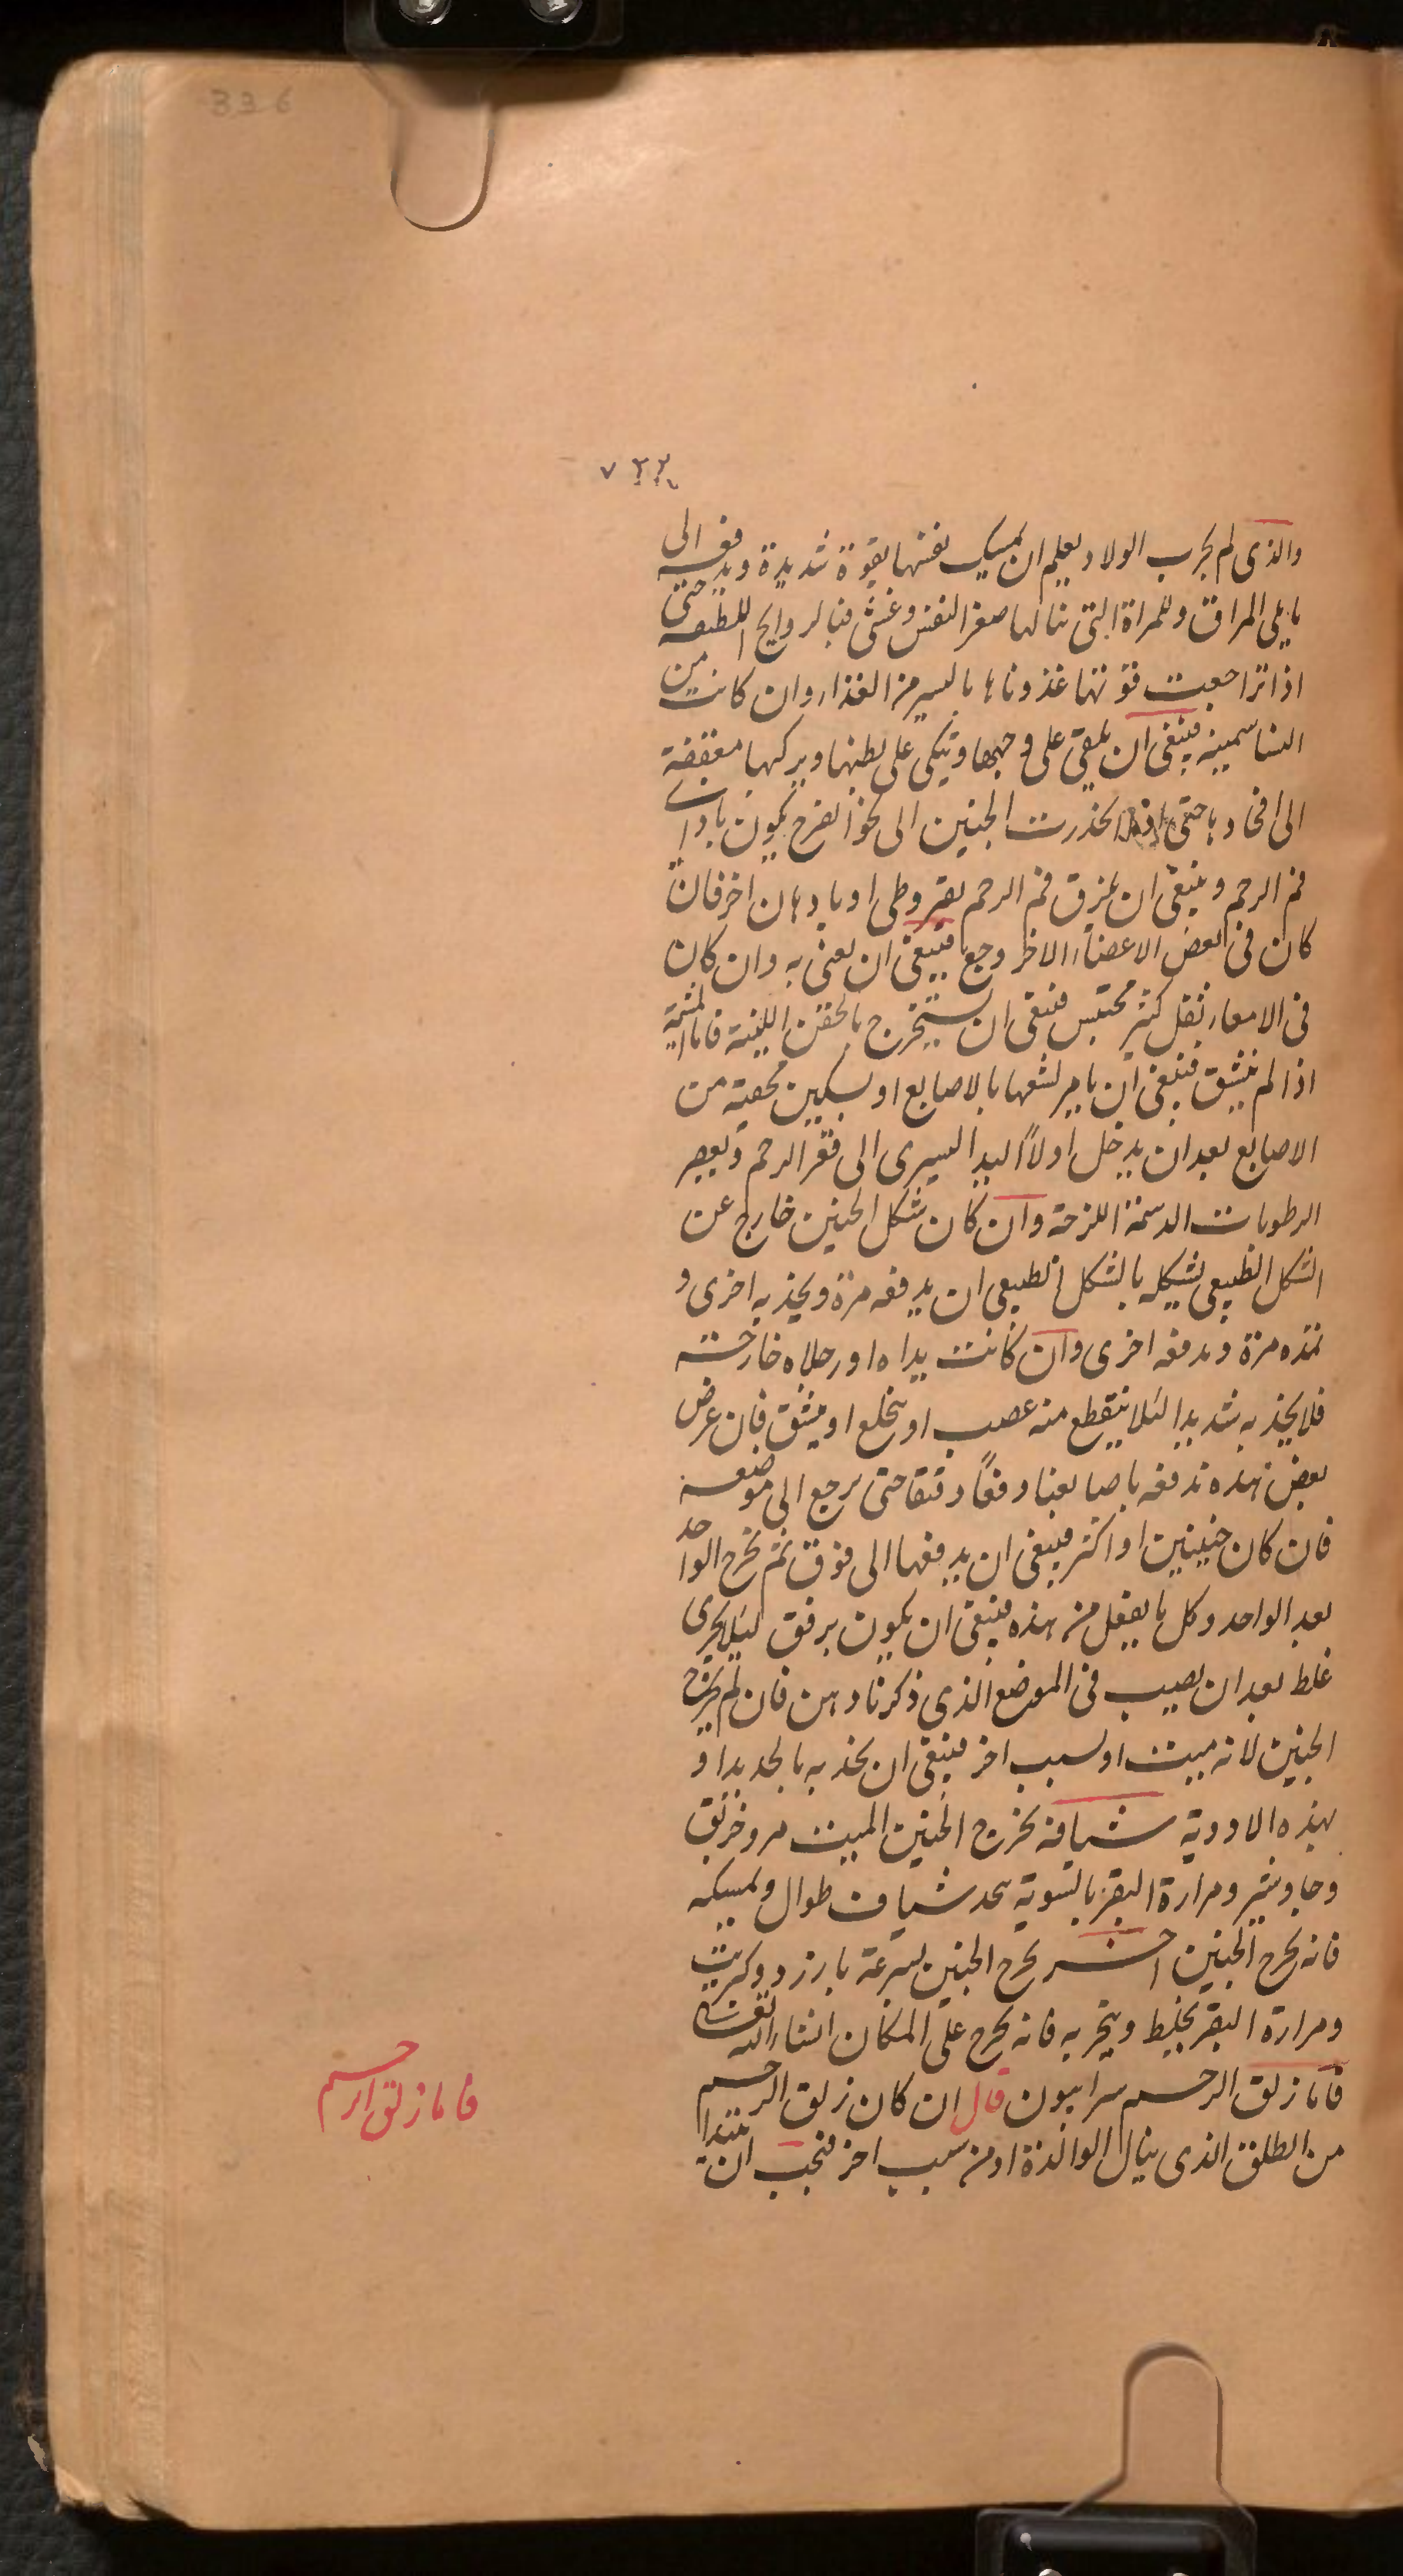 336
٧٢٢
والذى لم يجرب الولاد يعلم ان يمسك نفسها بقوة شديدة ويدفعه الى
ما يلى المراق وللمراة التى تنالها صغر النفس وغشى فبالروايح اللطيفه حتى
اذا تراجعت قوتها غذوناها باليسير من الغذاء وان كانت من
النسا سمينه فينبغى ان يلقى على وجهها وتتكى على بطنها وبركبها معقفة
الى افخادها حتى اذا انحدرت الجنين الى نحو الفرج يكون بازاء
فم الرحم وينبغى ان يمزق فم الرحم بقيروطى او بادهان اخر فان
كان فى بعض الاعضاء الاخر وجع فينبغى ان يعنى به وان كان
فى الامعاء ثقل كثير محتبس فينبغى ان يستخرج بالحقن اللينة فاما المشيمة
اذا لم ينشق فينبغى ان يامر بشقها بالاصابع او بسكين مخفية من
الاصابع بعد ان يدخل اولاً اليد اليسرى الى فقر الرحم ويعصر
الرطوبات الدسمة اللزجة وان كان شكل الجنين خارج عن
الشكل الطبيعى يشكله بالشكل الطبيعى ان يدفعه مرة ويجذبه اخرى و
تمده مرة وتدفعه اخرى وان كانت يداه او رجلاه خارجته
فلا يجذبه شديدا لئلا ينقطع منه عصب او ينخلع او ينشق فان عرض
بعض هذه ندفعه باصابعنا دفعاً دقيقا حتى يرجع الى موضعه
فان كان جنينين او اكثر فينبغى ان يدفعها الى فوق ثم يخرج الواحد
بعد الواحد وكل ما يفعل من هذه فينبغى ان يكون برفق لئلا يجرى
غلط بعد ان يصيب فى الموضع الذى ذكرنا دهن فان لم يخرج
الجنين لانه ميت او لسبب اخر فينبغى ان يجذبه بالحديد او
بهذه الادوية شيافة يخرج الجنين الميت مر وخربق
وجاوشير ومرارة البقر بالسوية يتخذ شياف طوال ويمسكه
فانه يخرج الجنين اخر يخرج الجنين بسرعة بارزد وكبريت
ومرارة البقر يخلط ويتخر به فانه يخرج على المكان انشاء الله تعالى
فاما زلق الرحم سرابيون قال ان كان زلق الرحم
من الطلق الذى ينال الوالدة او من سبب اخر فيجب ان يبتدا
فاما زلق الرحم